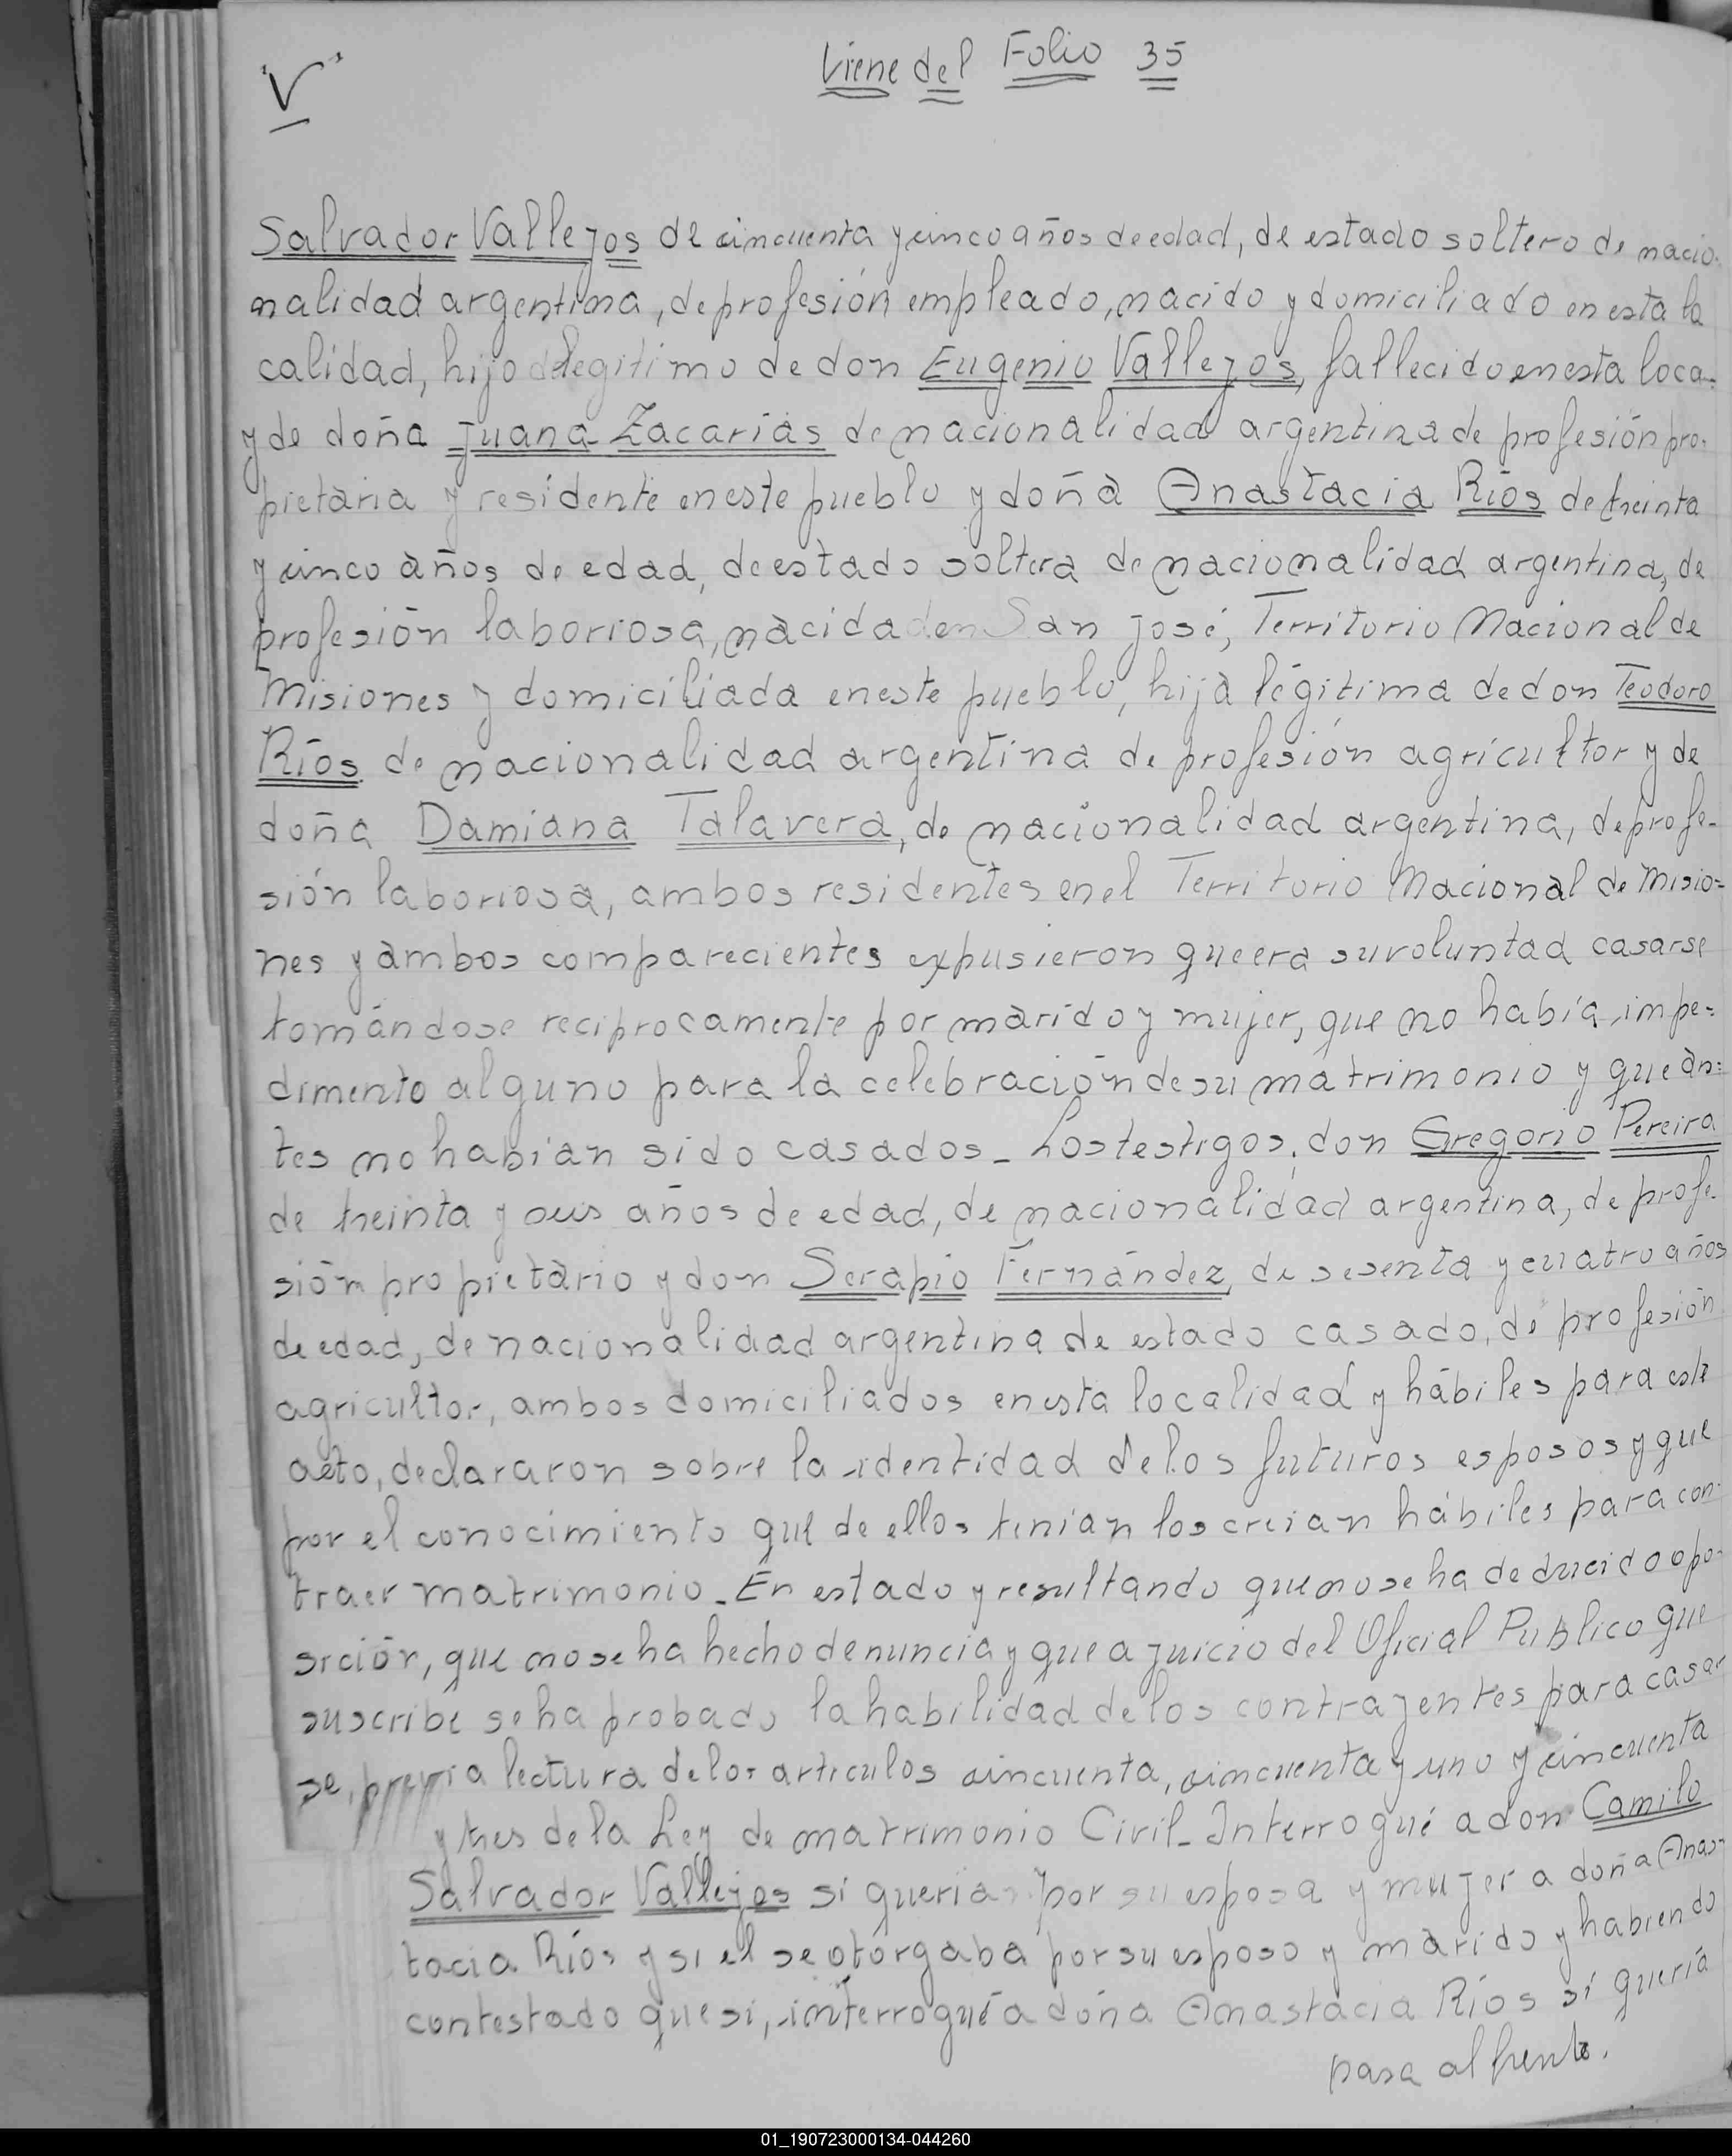 Viene del Folio 35
V
Salvador Vallejos de cincuenta y cinco años de edad, de estado soltero de nacio-
nalidad argentina, de profesión empleado, nacido y domiciliado en esta lo
calidad, hijo legitimo de don Eugenio Vallejos, fallecido en esta loca-
y de doña Juana Zacarias de nacionalidad argentina de profesión pro-
pietaria y residente en este pueblo y doña Anastacia Ríos de treinta
y cinco años de edad, de estado soltera de nacionalidad argentina, de
profesión laboriosa, nacida en San José, Territorio Nacional de
Misiones y domiciliada en este pueblo, hija legitima de don Teodoro
Ríos de nacionalidad argentina de profesión agricultor y de
doña Damiana Talavera, de nacionalidad argentina, de profe-
sión laboriosa, ambos residentes en el Territorio Nacional de Misio=
nes y ambos comparecientes expusieron que era su voluntad casarse
tomándose reciprocamente por marido y mujer, que no había impe=
dimento alguno para la celebración de su matrimonio y que an=
tes no habían sido casados - Los testigos, don Gregorio Pereira
de treinta y seis años de edad, de nacionalidad argentina, de profe-
sión propietario y don Serapio Fernández, de sesenta y cuatro años
de edad, de nacionalidad argentina de estado casado, de profesión
agricultor, ambos domiciliados en esta localidad y hábiles para este
acto, declararon sobre la identidad de los futuros esposos y que
por el conocimiento que de ellos tenían los creian hábiles para con-
traer matrimonio. En estado y resultando que no se ha deducido opo-
sición, que no se ha hecho denuncia y que a juicio del Oficial Publico que
suscribe se ha probado la habilidad de los contrayentes para casar
se, previa lectura de los articulos cincuenta, cincuenta y uno y cincuenta
y tres de la Ley de matrimonio Civil - Interrogué a don Camilo
Salvador Vallejos si quería por su esposa y mujer a doña Anas-
tacia Ríos y si el se otorgaba por su esposo y marido y habiendo
contestado que si, interrogué a doña Anastacia Ríos si quería
pasa al frente.
01_190723000134-044260